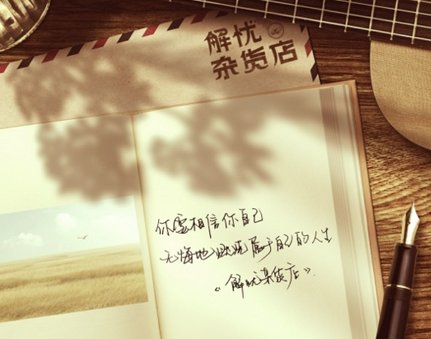 解忧
杂货店
你要相信你自己
无悔地燃烧属于自己的人生
《解忧杂货店》